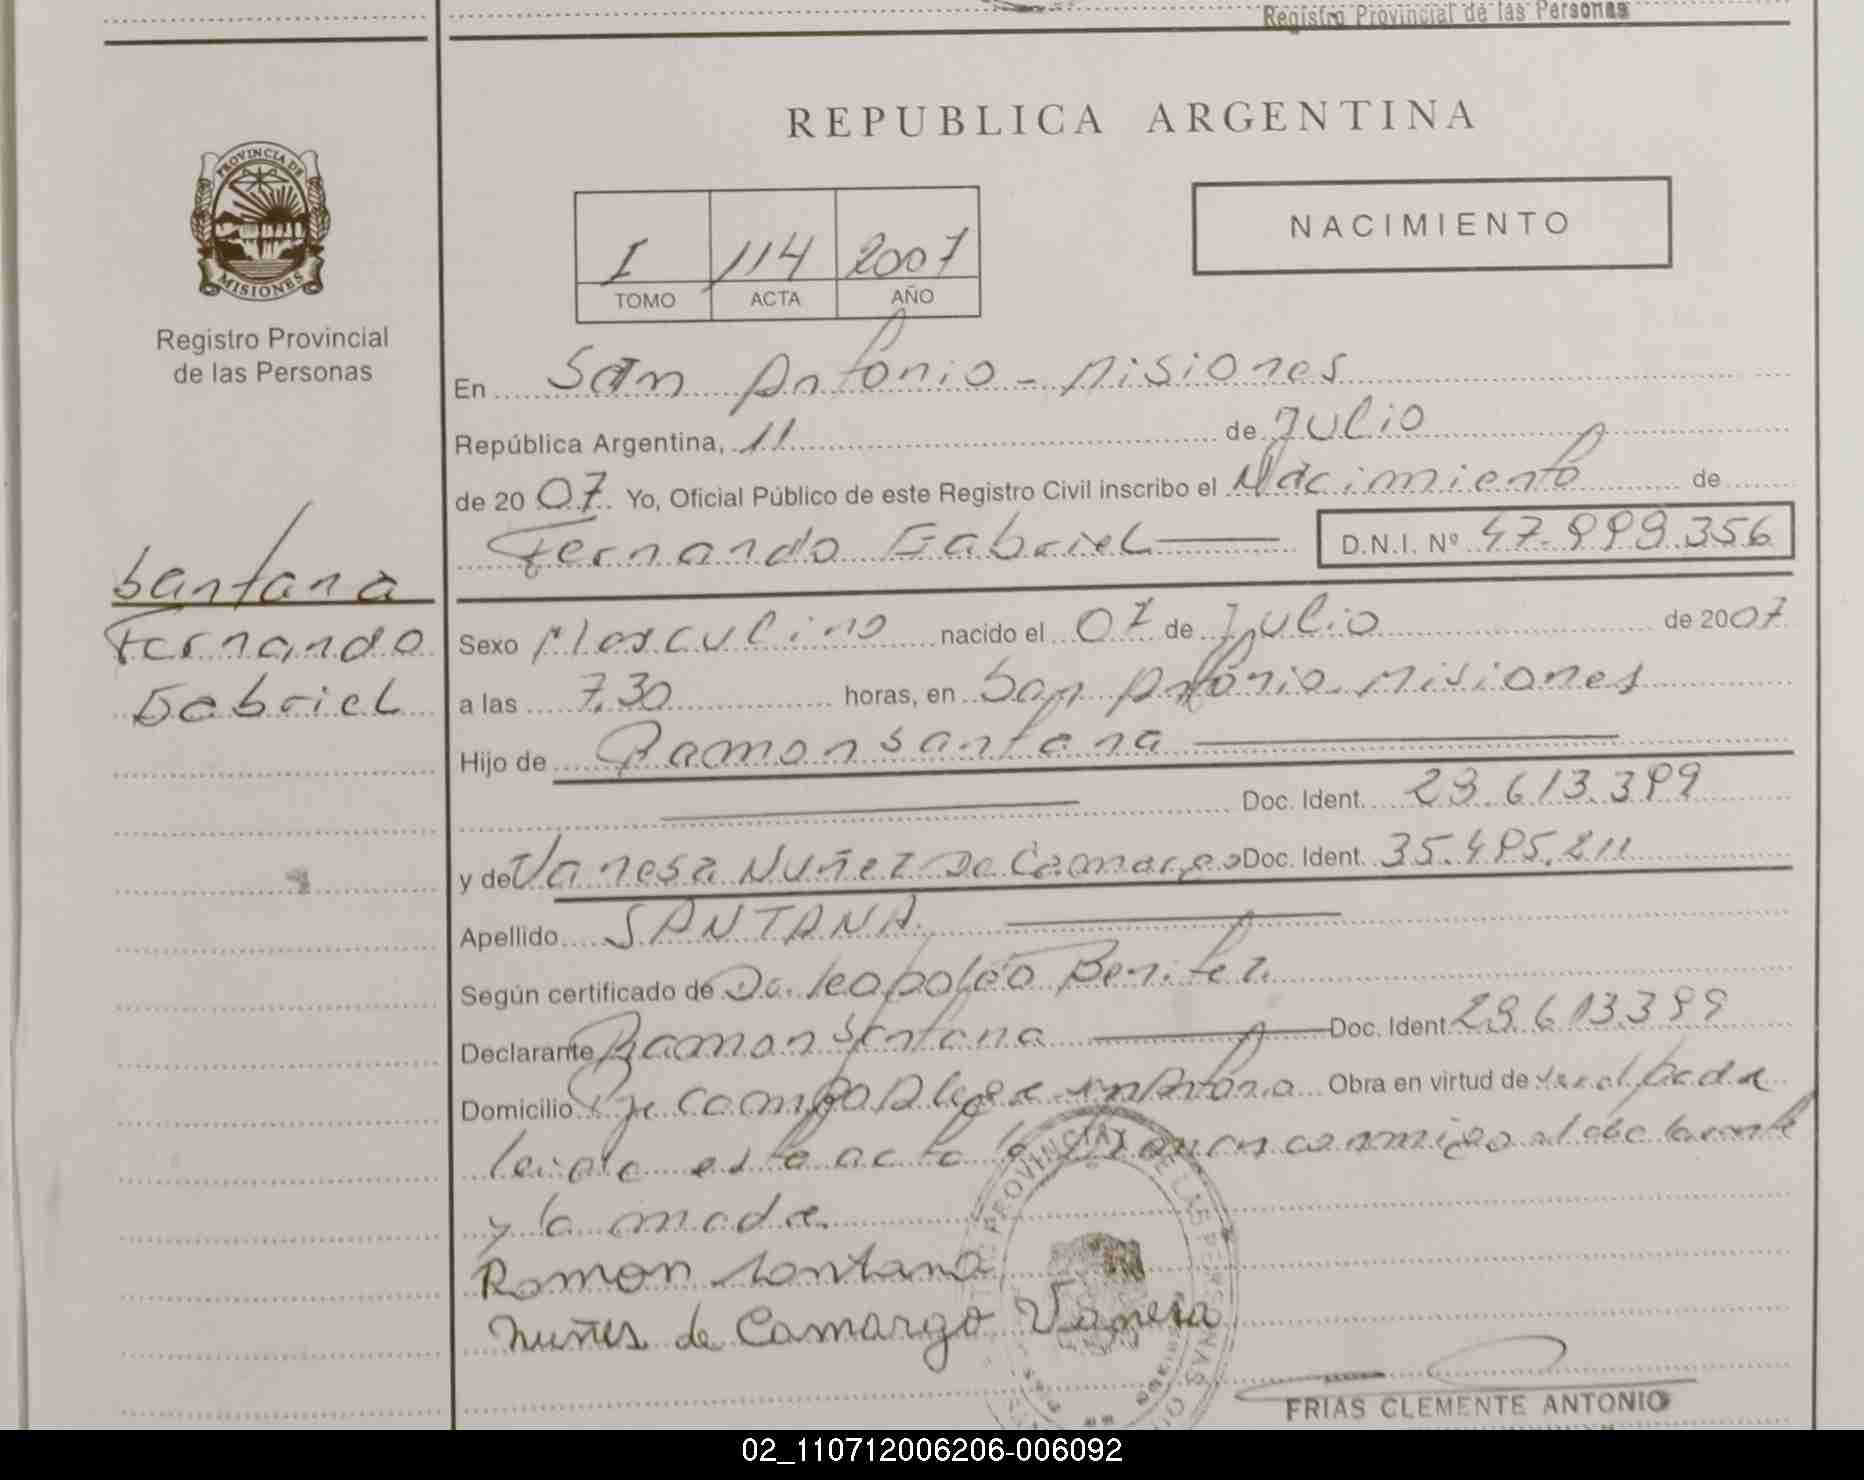 Registro Provincial de las Personas
REPUBLICA ARGENTINA
PROVINCIA DE
MISIONES
Registro Provincial
de las Personas
I 114 2007
TOMO ACTA AÑO
NACIMIENTO
En San Antonio - Misiones
República Argentina, 11 de Julio
de 2007 Yo, Oficial Público de este Registro Civil inscribo el Nacimiento de
Fernando Gabriel D.N.I. Nº 47.999.356
Santana
Fernando
Gabriel
Sexo Masculino nacido el 07 de Julio de 2007
a las 7,30 horas, en San Antonio Misiones
Hijo de Ramon Santana
Doc. Ident. 29.613.399
y de Vanesa Nuñez De Camargo Doc. Ident. 35.495.211
Apellido SANTANA
Según certificado de Dr. Leopoldo Benitez
Declarante Ramon Santana Doc. Ident. 29.613.399
Domicilio Obra en virtud de ser el padre
leida esta acta la firman conmigo el declarante
y la madre.
Ramon Santana
Nuñes de Camargo Vanesa
FRIAS CLEMENTE ANTONIO
02_110712006206-006092